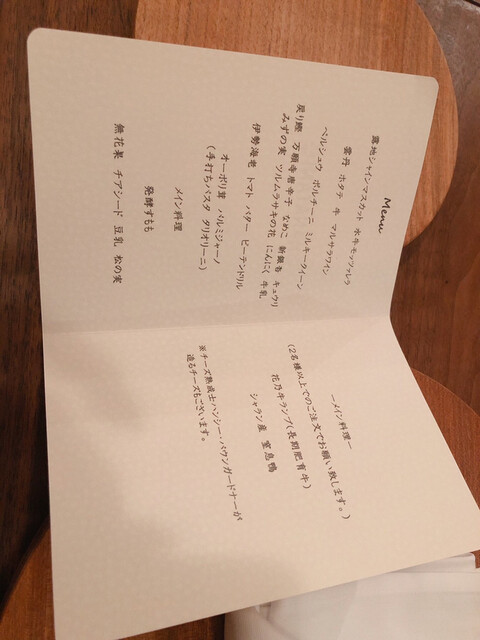 Menu
露地シャインマスカット 水牛モッツァレラ
雲丹 ホタテ 牛 マルサラワイン
ペルシュウ ポルチーニ ミルキークイーン
戻り鰹 万願寺唐辛子 なめこ 新銀杏 キュウリ
みずの実 ツルムラサキの花 にんにく 牛乳
伊勢海老 トマト バター ピーテンドリル
オーボリ茸 パルミジャーノ
(手打ちパスタ タリオリーニ)
メイン料理
発酵すもも
無花果 チアシード 豆乳 松の実
ーメイン料理ー
(2名様以上でのご注文でお願い致します。)
花乃牛ランプ(長期肥育牛)
シャラン産 窒息鴨
※チーズ熟成士ハンシー・バウンガードナーが
造るチーズもございます。